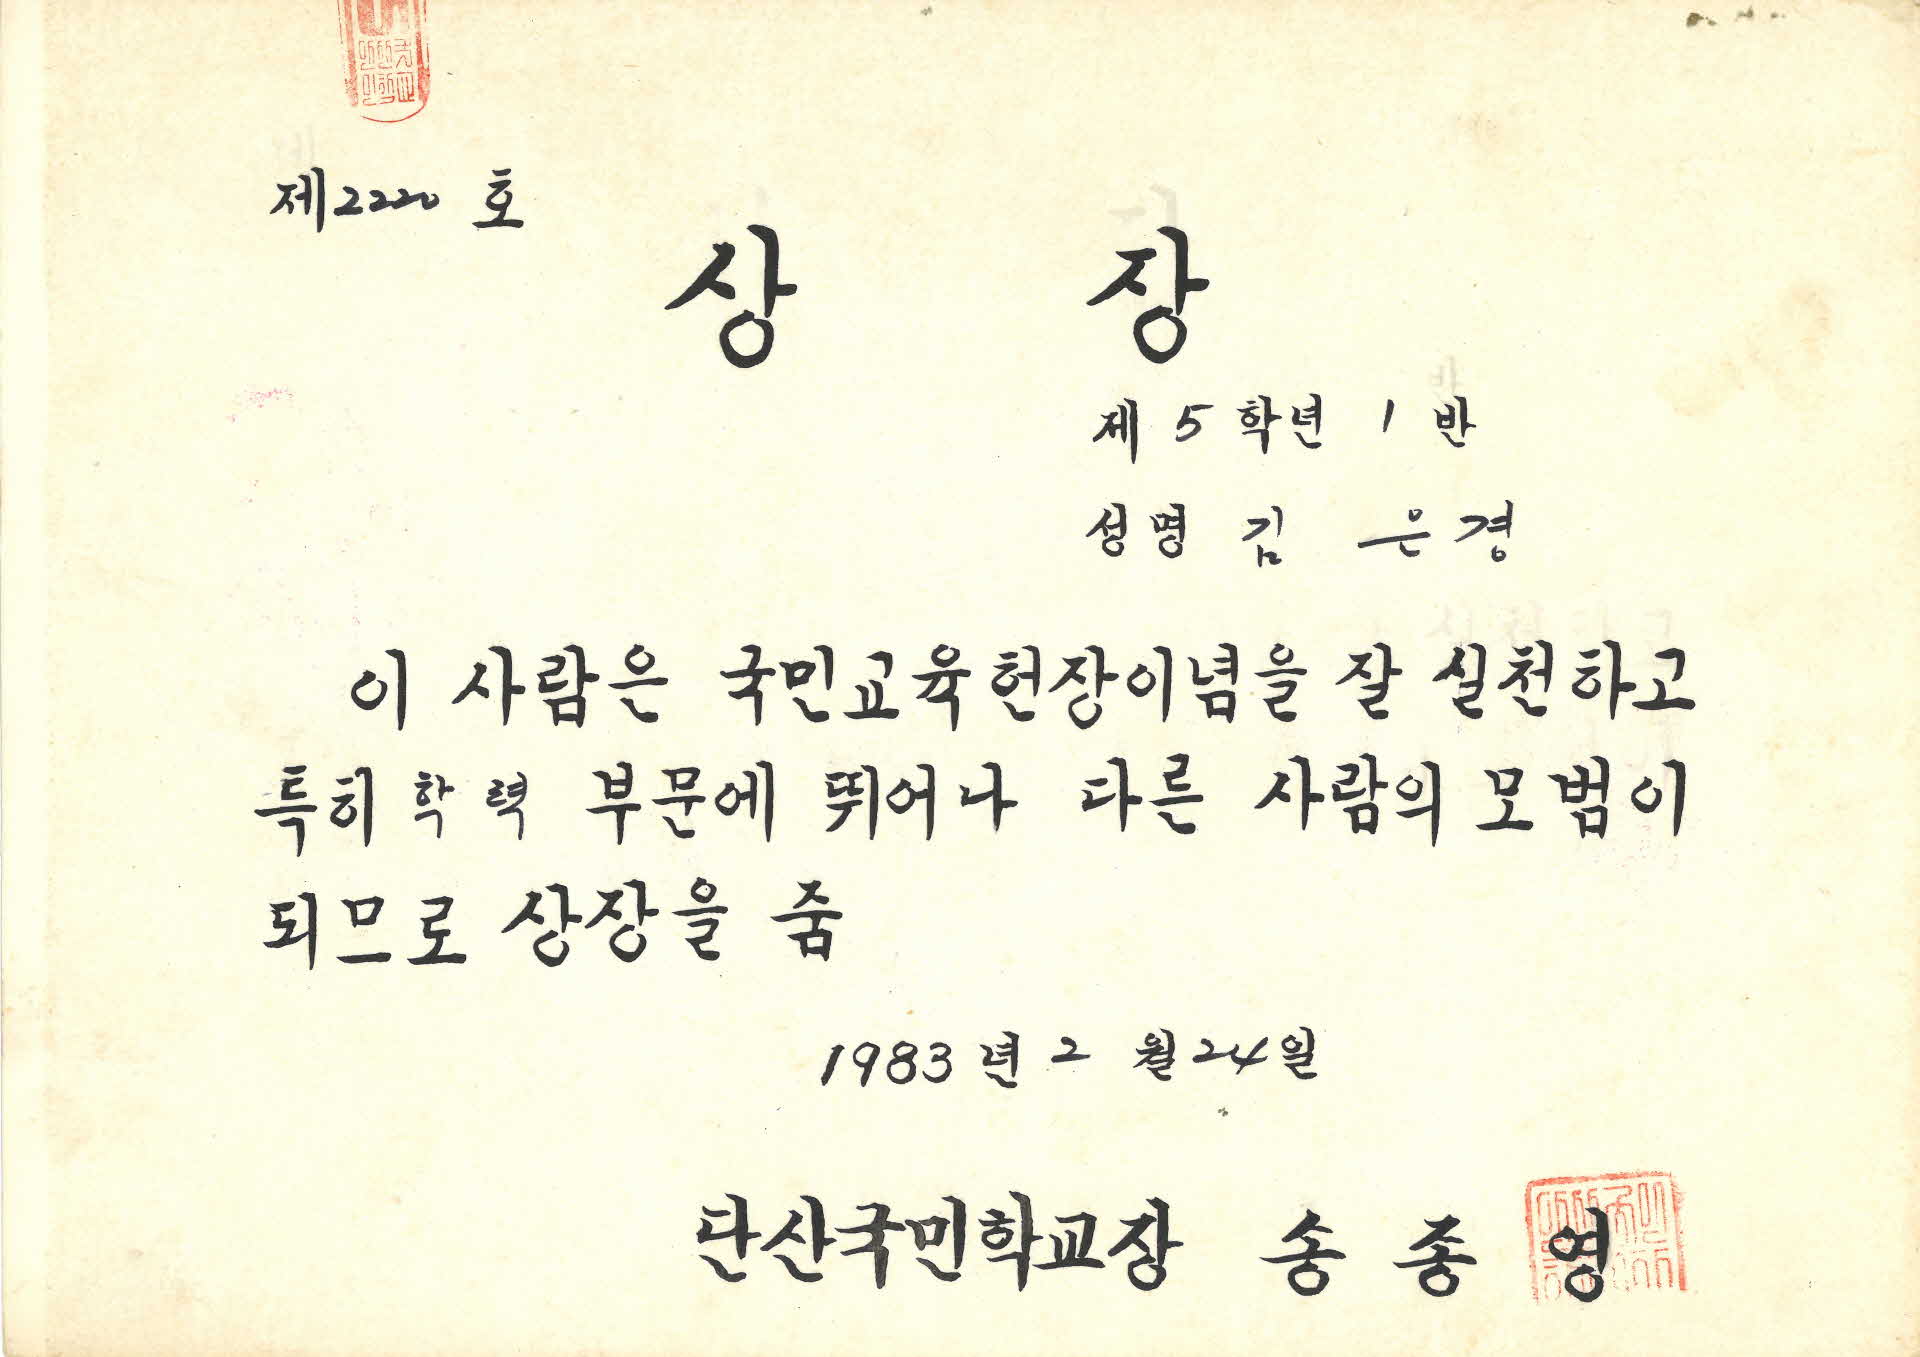 제2220 호
상 장
제 5 학년 1 반
성명 김 은경
이 사람은 국민교육헌장이념을 잘 실천하고
특히 학력 부문에 뛰어나 다른 사람의 모범이
되므로 상장을 줌
1983년 2 월 24일
단산국민학교장 송 종 영